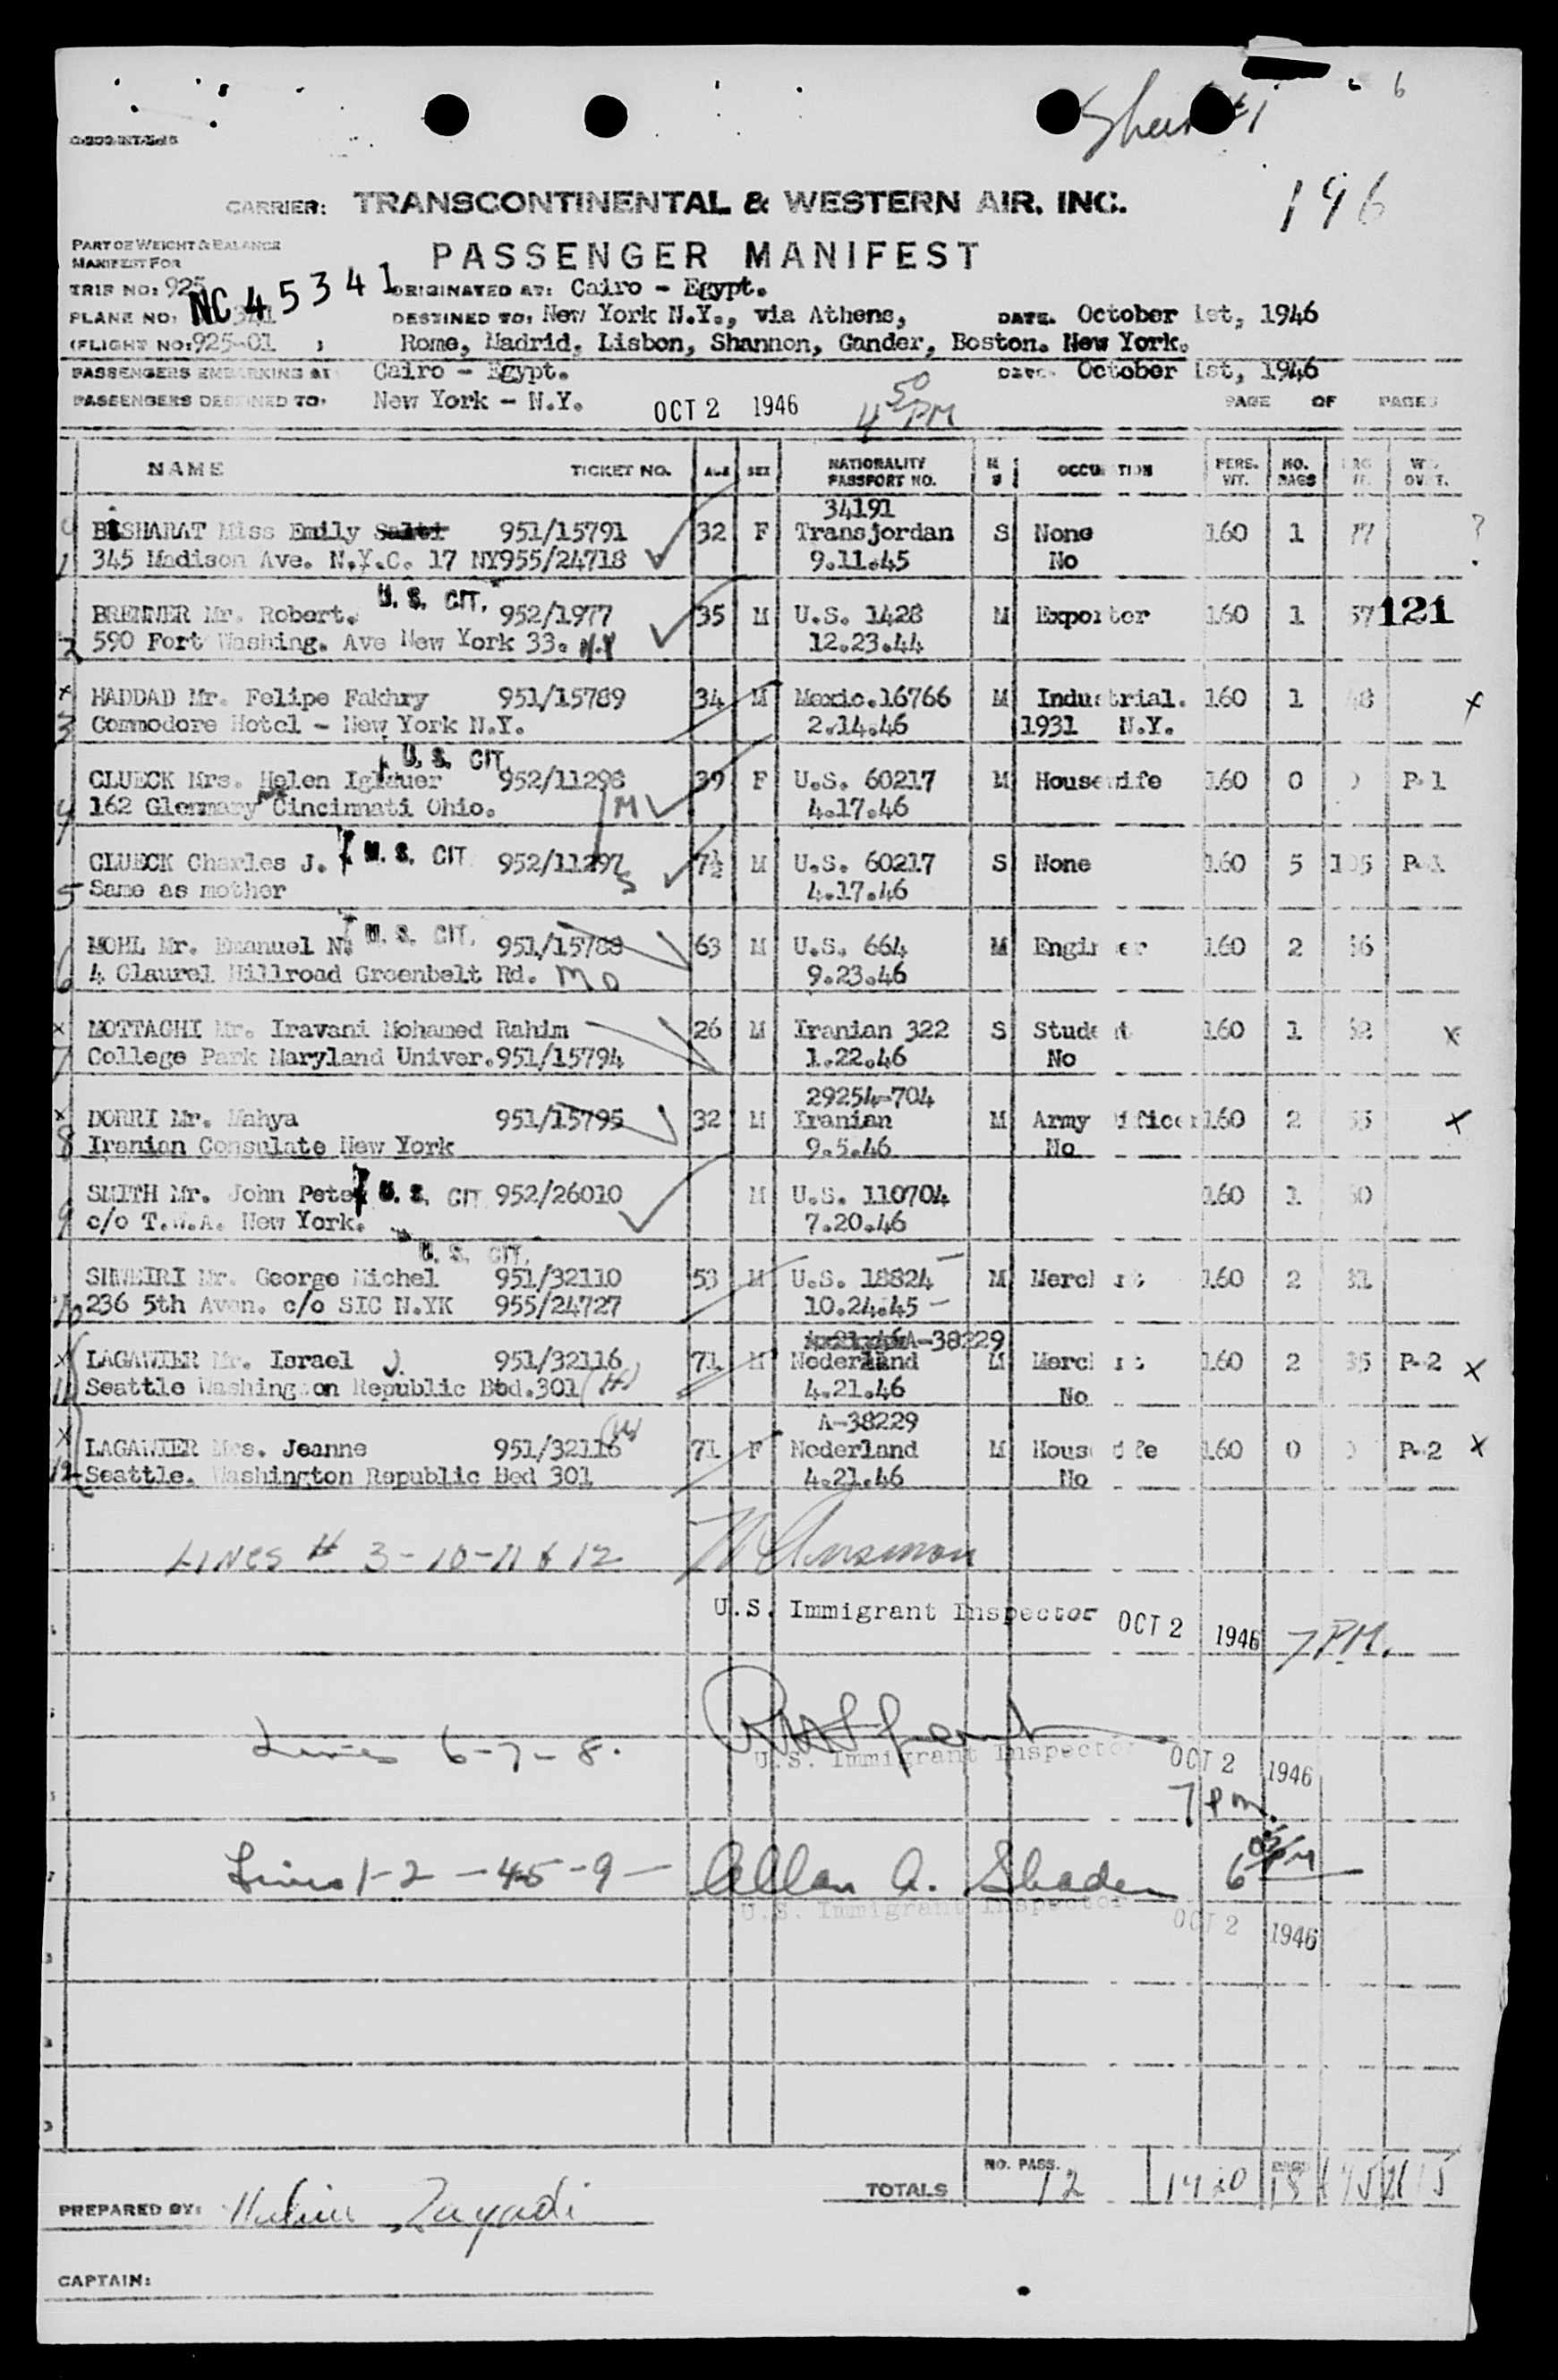 Sheet #1
6
196
CARRIER: TRANSCONTINENTAL & WESTERN AIR, INC.
PART OF WEIGHT & BALANCE
MANIFEST FOR
PASSENGER MANIFEST
TRIP NO: 925 ORIGINATED AT: Cairo - Egypt.
PLANE NO. NC 45341 DESTINED TO: New York N.Y., via Athens, DATE. October 1st, 1946
(FLIGHT NO: 925-01 ) Rome, Madrid, Lisbon, Shannon, Gander, Boston. New York.
PASSENGERS EMBARKING AT Cairo - Egypt. DATE. October 1st, 1946
PASSENGERS DESTINED TO. New York - N.Y. OCT 2 1946 4 50 PM PAGE OF PAGES
NAME TICKET NO. AGE SEX NATIONALITY PASSPORT NO. M S OCCUPATION PERS. WT. NO. BAGS
34191
BISHARAT Miss Emily Salti 951/15791 32 F Transjordan S None 160 1 77 ?
1 345 Madison Ave. N.Y.C. 17 NY955/24718 9.11.45 No
U. S. CIT.
BRENNER Mr. Robert. 952/1977 35 M U.S. 1428 M Exporter 160 1 57 121
2 590 Fort Washing. Ave New York 33. N.Y 12.23.44
x HADDAD Mr. Felipe Fakhry 951/15789 34 M Mexic.16766 M Industrial. 160 1 48 x
3 Commodore Hotel - New York N.Y. 2.14.46 1931 N.Y.
U. S. CIT.
GLUECK Mrs. Helen Iglauer 952/11298 39 F U.S. 60217 M Housewife 160 0 P-1
4 162 Glenmary Ave Cincinnati Ohio. M 4.17.46
GLUECK Charles J. U. S. CIT 952/11297 7½ M U.S. 60217 S None 160 5 105 P-1
5 Same as mother S 4.17.46
MOHL Mr. Emanuel N. U. S. CIT. 951/15788 63 M U.S. 664 M Engineer 160 2
6 4 Claurel Hillroad Greenbelt Rd. MD 9.23.46
x MOTTAGHI Mr. Iravani Mohamed Rahim 26 M Iranian 322 S Student 160 1 x
7 College Park Maryland Univer.951/15794 1.22.46 No
29254-704
x DORRI Mr. Mahya 951/15795 32 M Iranian M Army Officer 160 2 x
8 Iranian Consulate New York 9.5.46 No
SMITH Mr. John Peter U. S. CIT 952/26010 M U.S. 110704 160 1
9 c/o T.W.A. New York. 7.20.46
U. S. CIT.
SHWEIRI Mr. George Michel 951/32110 53 M U.S. 18824 M Merchant 160 2
10 236 5th Aven. c/o SIC N.YK 955/24727 10.24.45
A-38229
x LAGAWIER Mr. Israel J. 951/32116 71 M Nederland M Merchant 160 2 P-2 x
11 Seattle Washington Republic Bbd.301 (H) 4.21.46 No
A-38229
x LAGAWIER Mrs. Jeanne 951/32116 (W) 71 F Nederland M Housewife 160 0 P-2 x
12 Seattle. Washington Republic Bed 301 4.21.46 No
LINES # 3-10-11 & 12
U.S. Immigrant Inspector OCT 2 1946 7 PM.
Lines 6-7-8.
U.S. Immigrant Inspector OCT 2 1946
7 pm.
Lines 1-2-45-9- Allan A. Shaden 6 05 PM
U.S. Immigrant Inspector OCT 2 1946
TOTALS NO. PASS. 12
PREPARED BY: Zayadi
CAPTAIN: